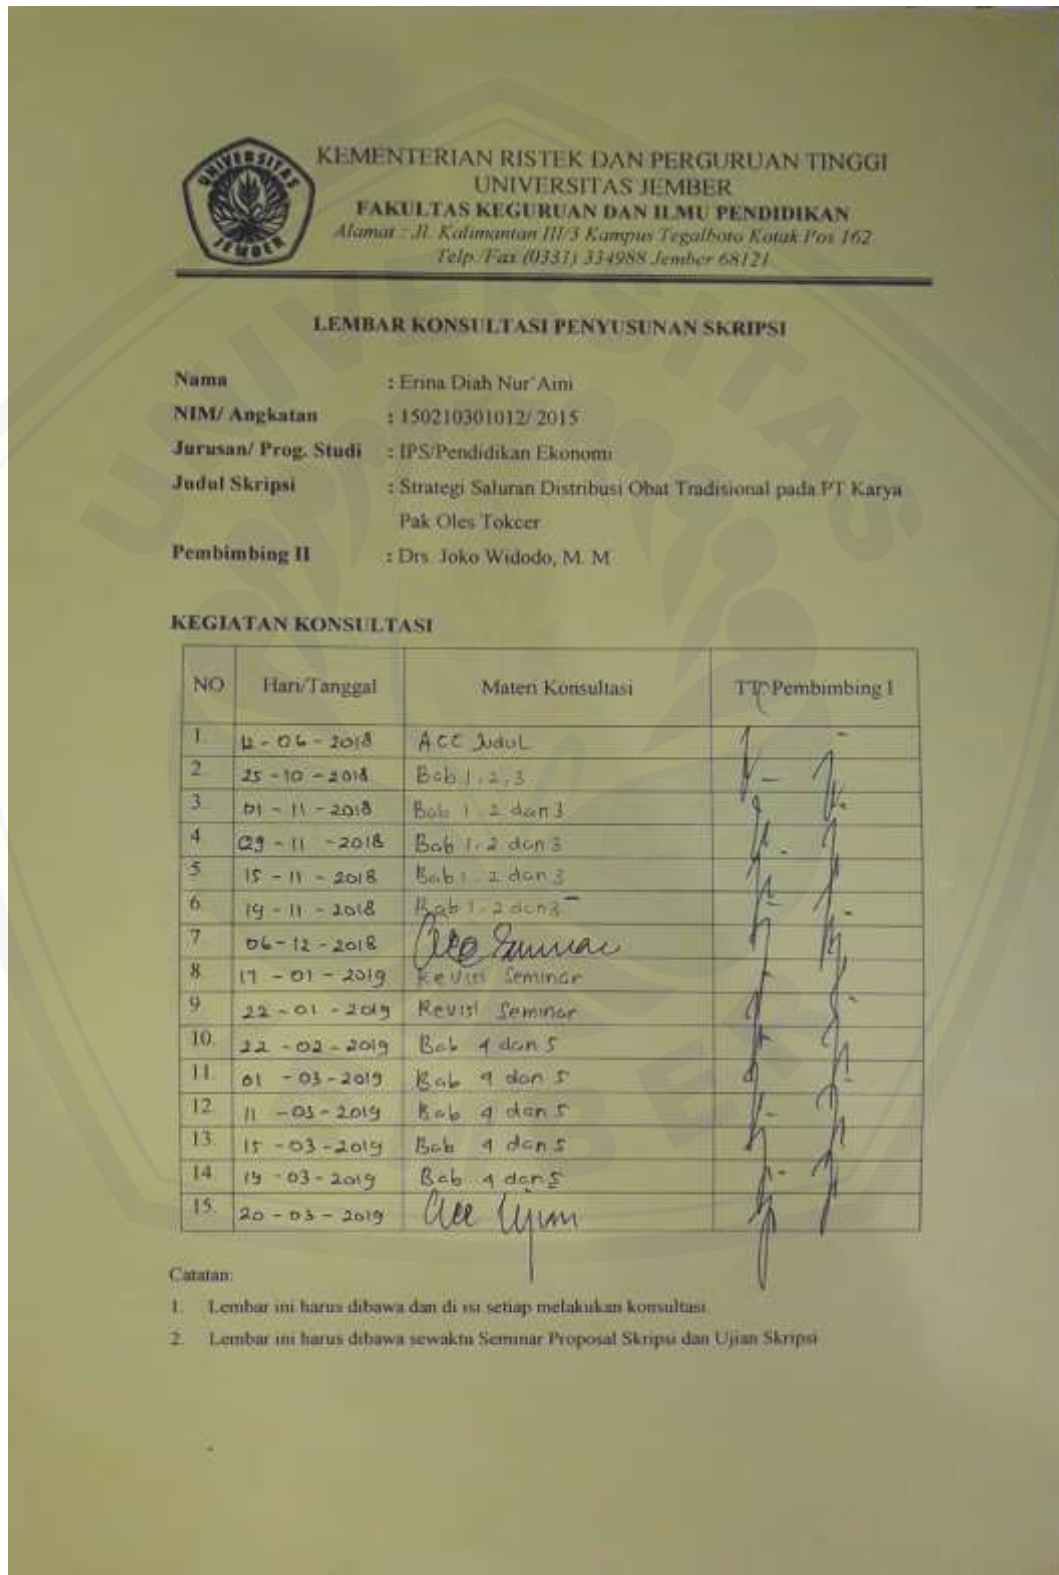 UNIVERSITAS
JEMBER
KEMENTERIAN RISTEK DAN PERGURUAN TINGGI
UNIVERSITAS JEMBER
FAKULTAS KEGURUAN DAN ILMU PENDIDIKAN
Alamat : Jl. Kalimantan III/3 Kampus Tegalboto Kotak Pos 162
Telp./Fax (0331) 334988 Jember 68121
LEMBAR KONSULTASI PENYUSUNAN SKRIPSI
Nama : Erina Diah Nur'Aini
NIM/ Angkatan : 150210301012/ 2015
Jurusan/ Prog. Studi : IPS/Pendidikan Ekonomi
Judul Skripsi : Strategi Saluran Distribusi Obat Tradisional pada PT Karya
Pak Oles Tokcer
Pembimbing II : Drs. Joko Widodo, M. M
KEGIATAN KONSULTASI
NO Hari/Tanggal Materi Konsultasi Pembimbing I
1. 12 - 06 - 2018 ACC Judul
2. 25 - 10 - 2018 Bab 1, 2, 3
3. 01 - 11 - 2018 Bab 1, 2 dan 3
4 - 11 - 2018 Bab 1, 2 dan 3
5 15 - 11 - 2018 Bab 1, 2 dan 3
6 19 - 11 - 2018 Bab 1, 2 dan 3
7 06 - 12 - 2018 acc Seminar
8. 17 - 01 - 2019 Revisi Seminar
9 22 - 01 - 2019 Revisi Seminar
10. 22 - 02 - 2019 Bab 4 dan 5
11. 01 - 03 - 2019 Bab 4 dan 5
12. 11 - 03 - 2019 Bab 4 dan 5
13. 15 - 03 - 2019 Bab 4 dan 5
14. 19 - 03 - 2019 Bab 4 dan 5
15. 20 - 03 - 2019 acc Ujian
Catatan:
1. Lembar ini harus dibawa dan di isi setiap melakukan konsultasi.
2. Lembar ini harus dibawa sewaktu Seminar Proposal Skripsi dan Ujian Skripsi